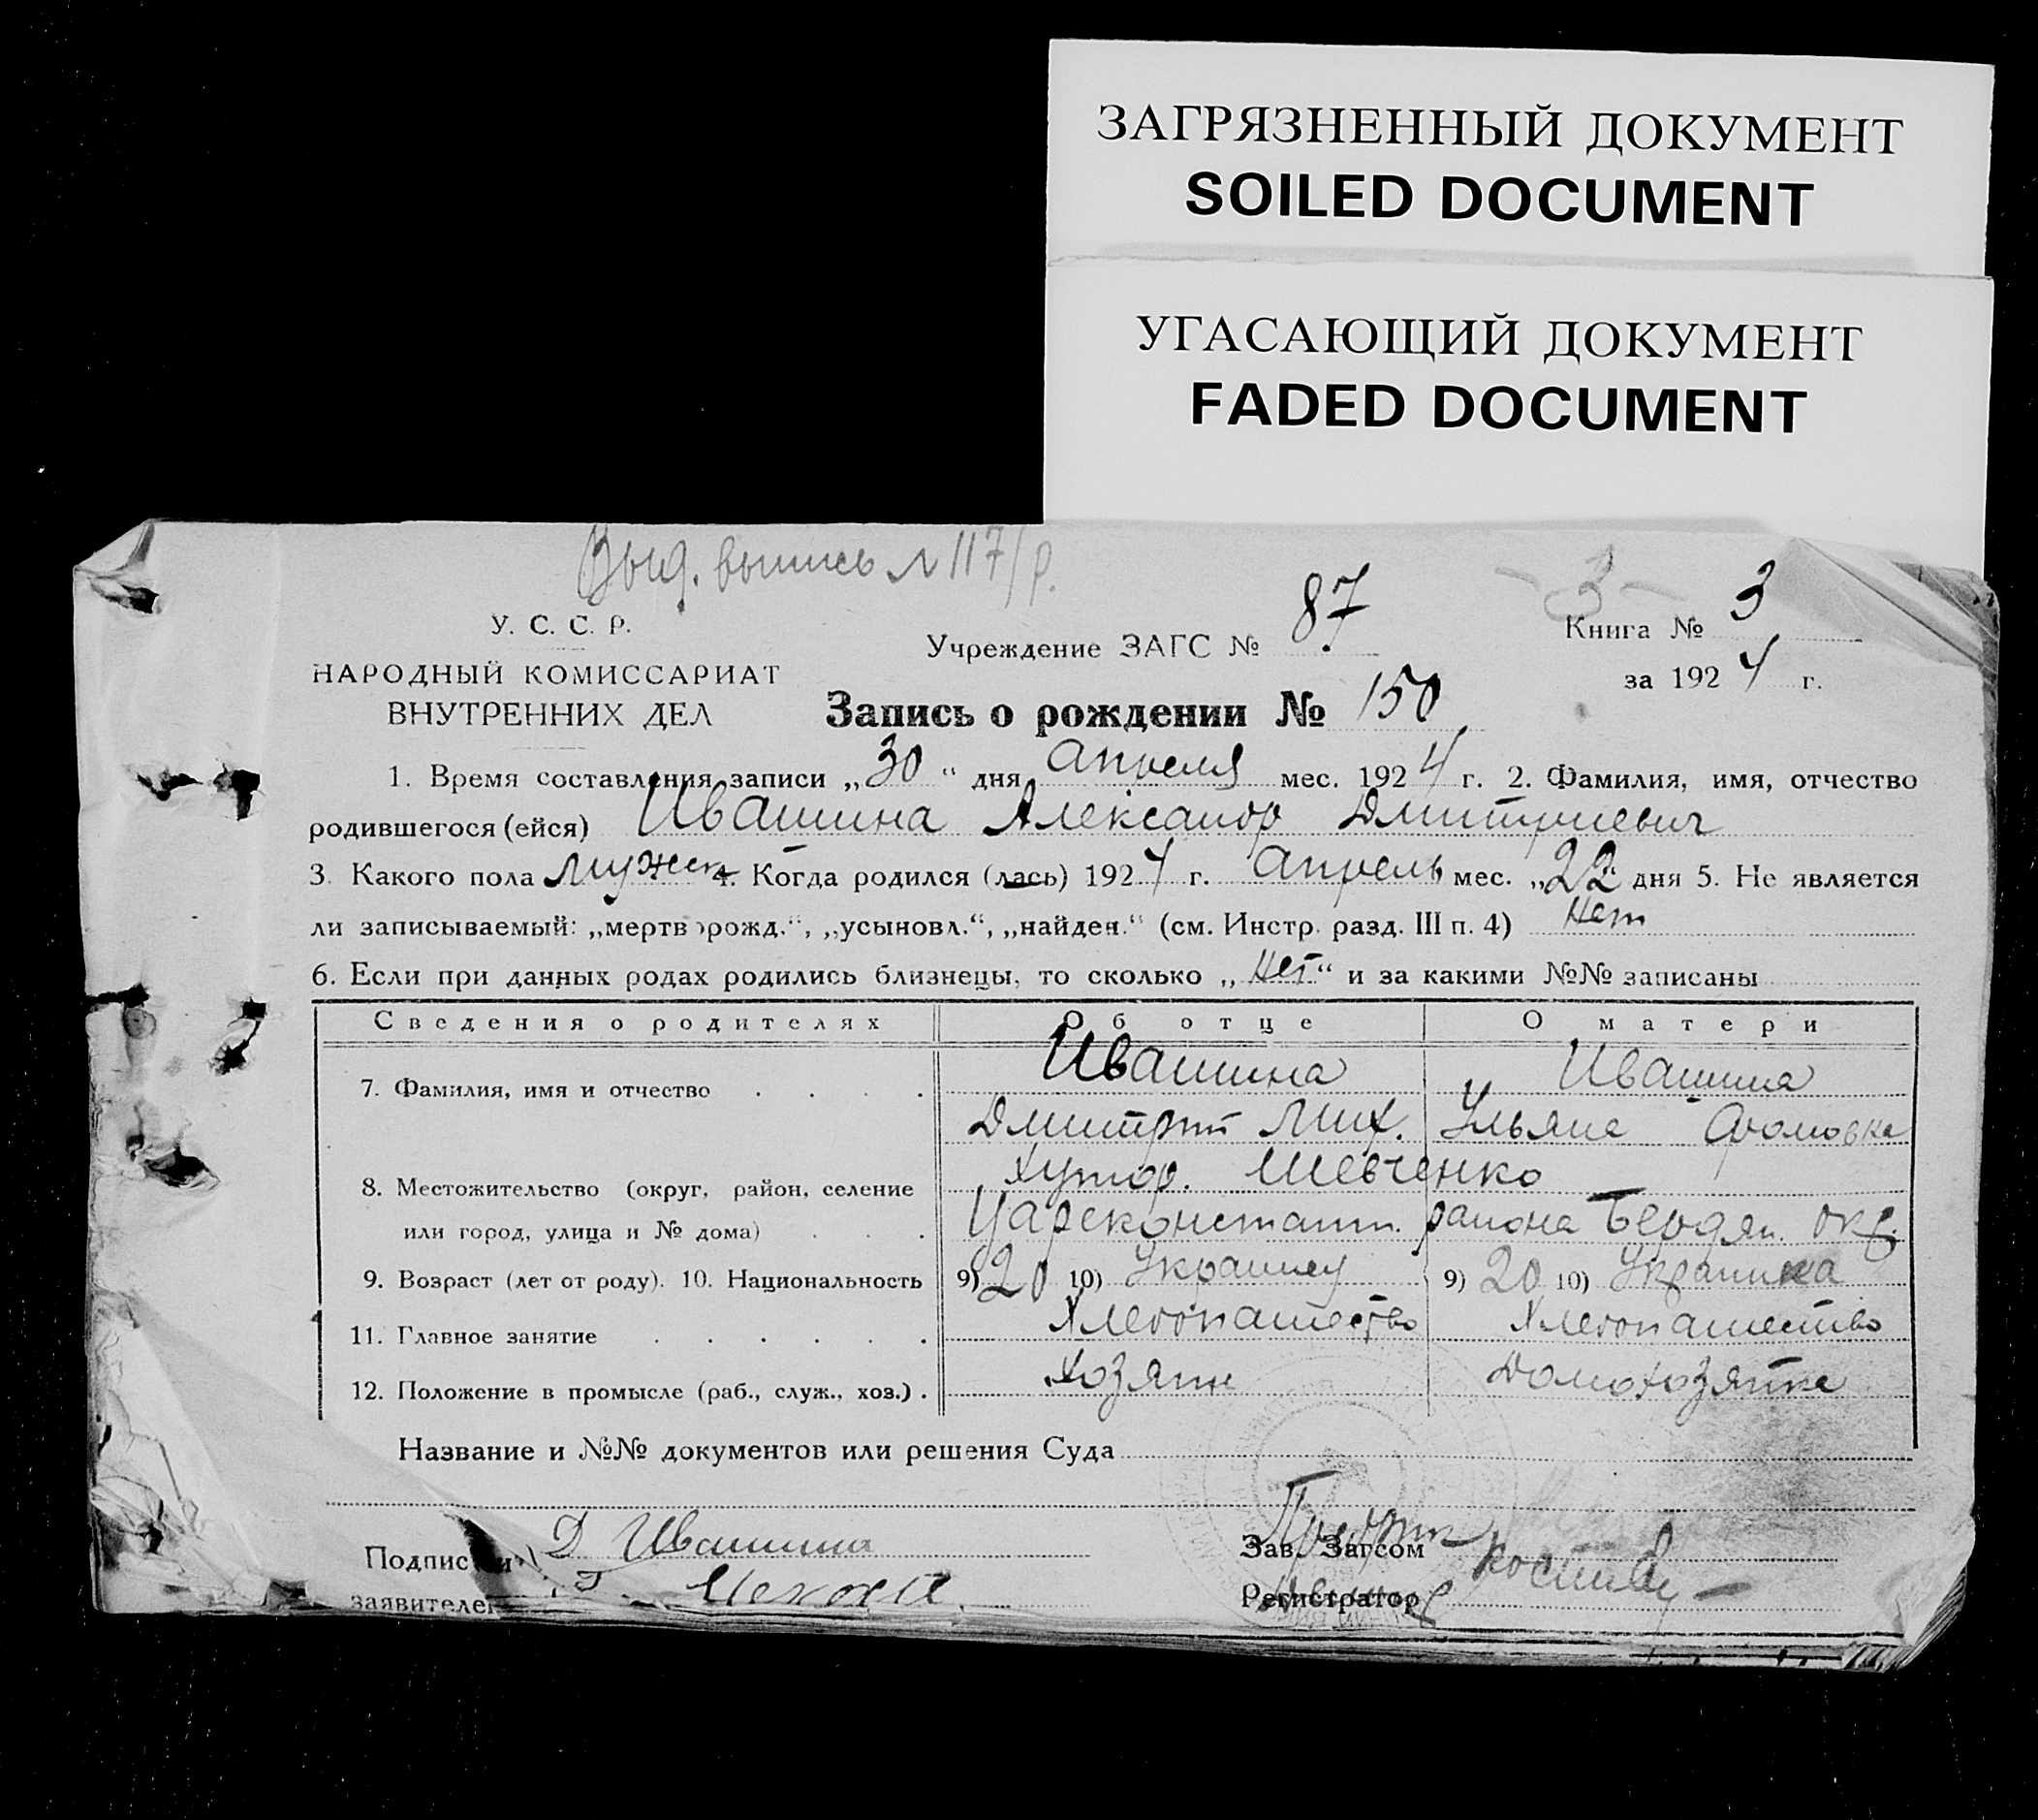 ЗАГРЯЗНЕННЫЙ ДОКУМЕНТ
SOILED DOCUMENT
УГАСАЮЩИЙ ДОКУМЕНТ
FADED DOCUMENT
Выд. выпись № 117/р.
- 3 -
У. С. С. Р.
НАРОДНЫЙ КОМИССАРИАТ
ВНУТРЕННИХ ДЕЛ
Учреждение ЗАГС № 87
Книга № 3
за 1924 г.
Запись о рождении № 150
1. Время составления записи „30“ дня Апреля мес. 1924 г. 2. Фамилия, имя, отчество
родившегося (ейся) Ивашина Александр Дмитриевич
3. Какого пола Мужск 4. Когда родился (лась) 1924 г. Апрель мес. „22“ дня 5. Не является
ли записываемый: „мертворожд.“, „усыновл.“, „найден.“ (см. Инстр. разд. III п. 4) Нет
6. Если при данных родах родились близнецы, то сколько „Нет“ и за какими №№ записаны
Сведения о родителях Об отце О матери
7. Фамилия, имя и отчество Ивашина Ивашина
Дмитрий Мих. Ульяна
8. Местожительство (округ, район, селение Хутор. Шевченко
или город, улица и № дома) Цареконстант. района Бердян. окр.
9. Возраст (лет от роду). 10. Национальность 9) 20 10) Украинец 9) 20 10) Украинка
11. Главное занятие Хлебопашество Хлебопашество
12. Положение в промысле (раб., служ., хоз.) Хозяин Домохозяйка
Название и №№ документов или решения Суда
Подписи Д Ивашина
заявителей
Зав. Загсом
Регистратор